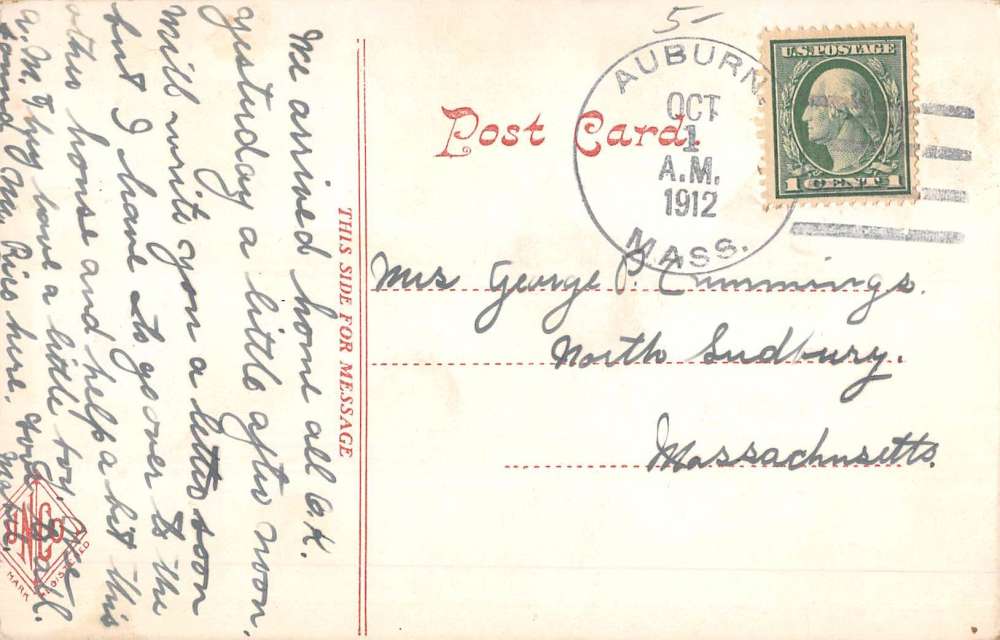 5-
AUBURN,
OCT
1
A.M.
1912
MASS.
U.S. POSTAGE
1 CENT 1
Post Card.
THIS SIDE FOR MESSAGE
Mrs George P. Cummings.
North Sudbury.
Massachusetts.
We arrived home all O.K.
yesterday a little after noon.
Will write you a letter soon
but I have to go over to the
other house and help a bit this
a. M. They have a little boy. We
found Mrs here. to all.
MARK REGISTERED